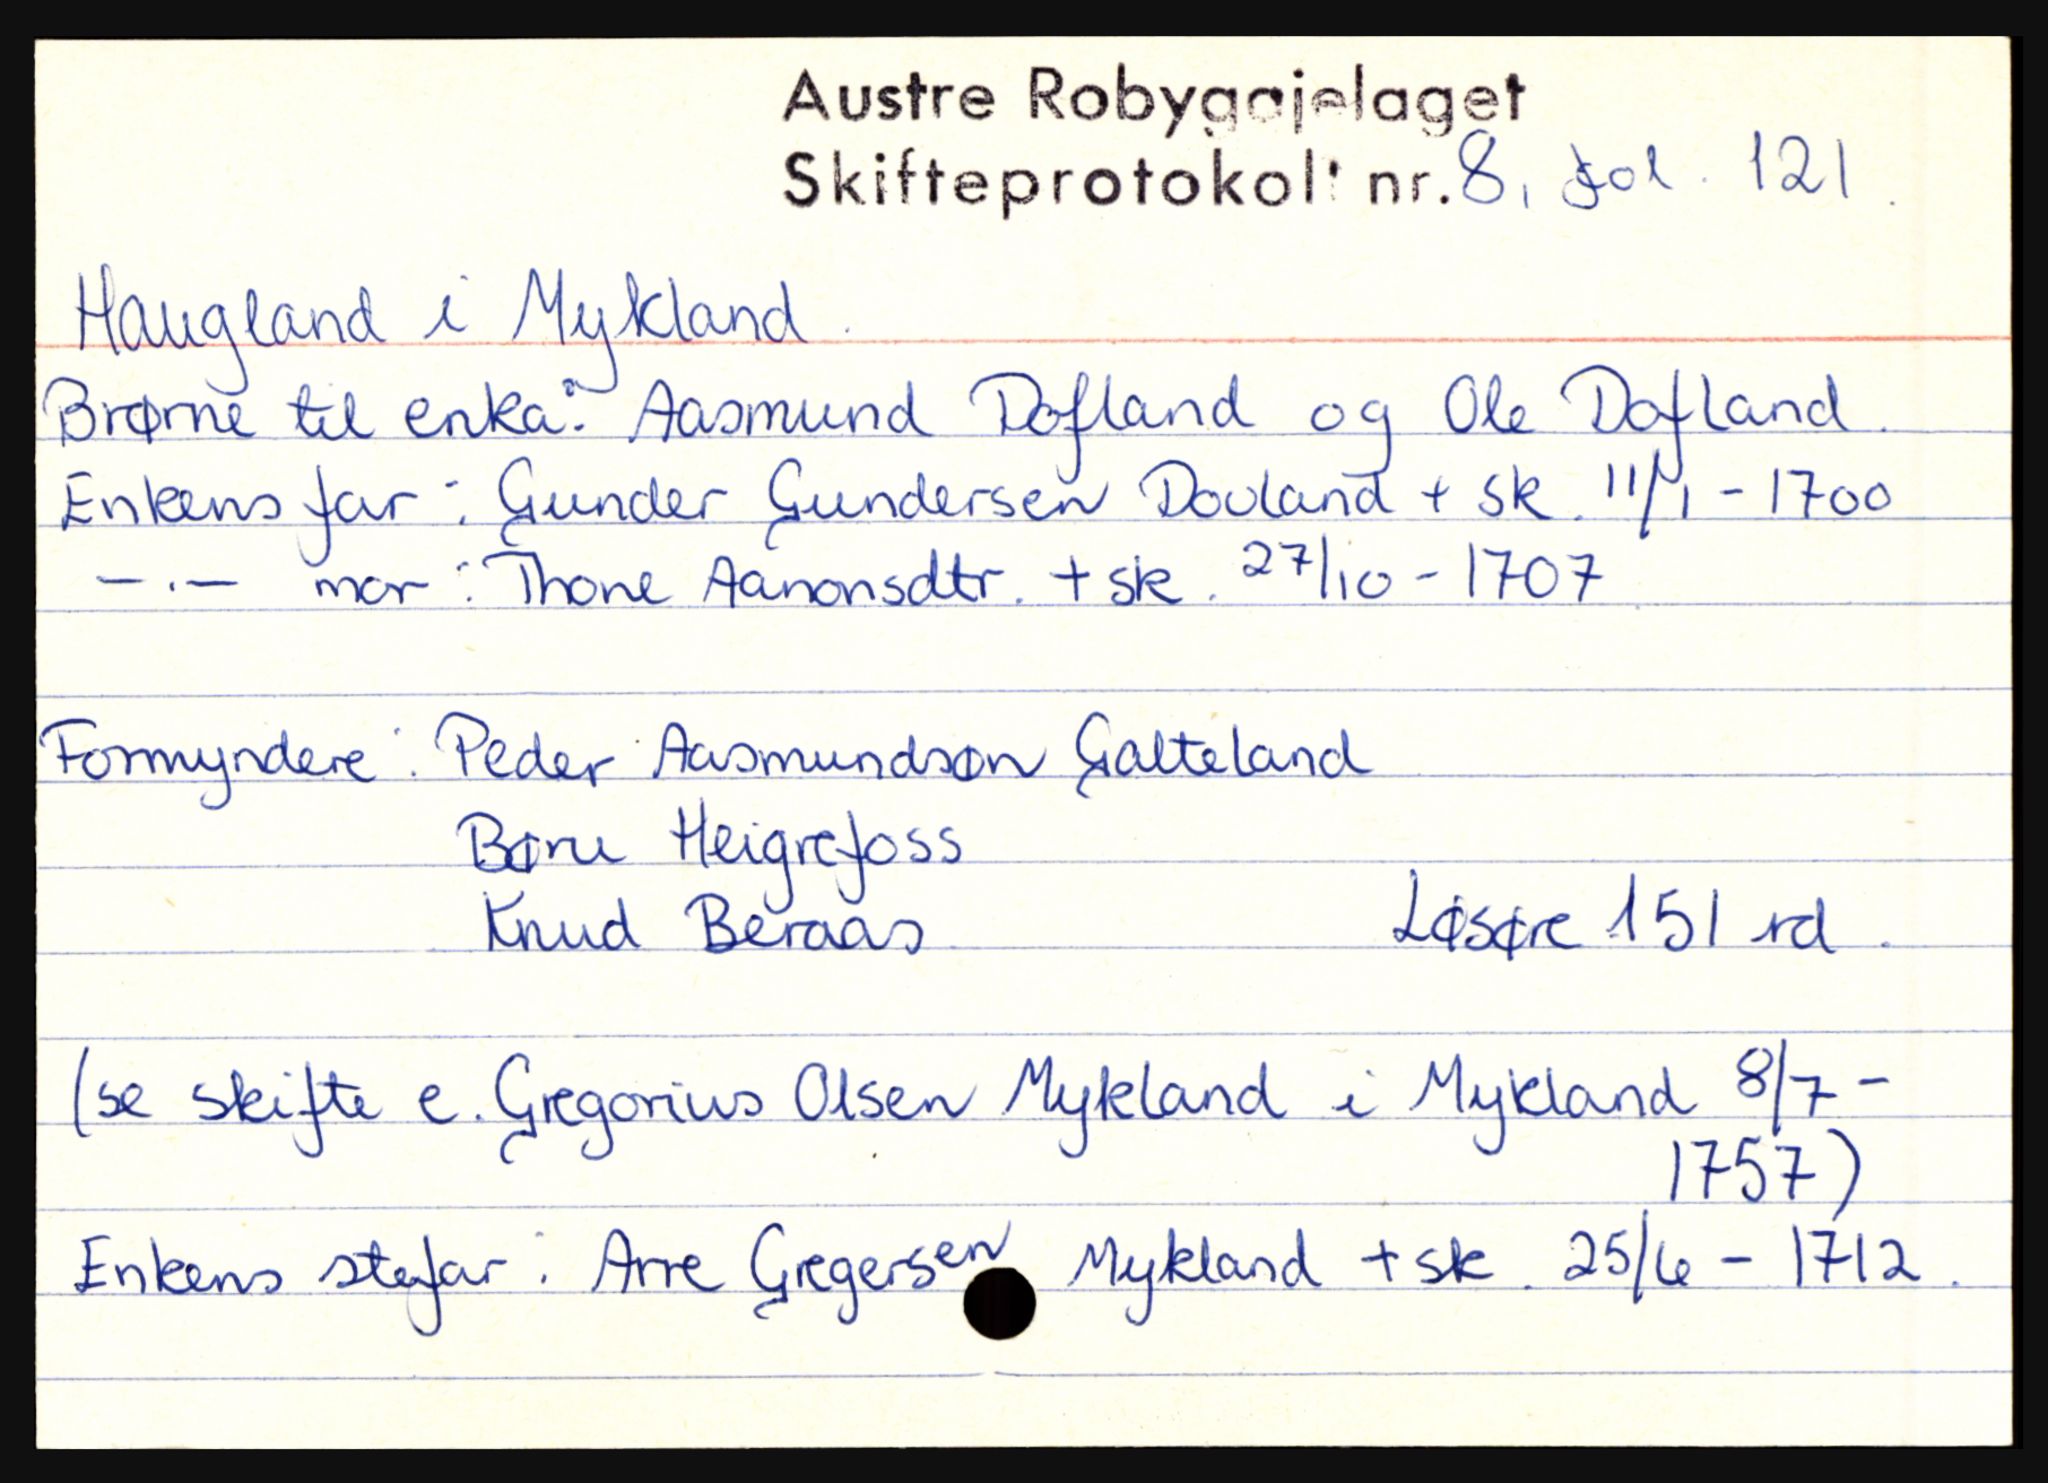 Austre Robygdelaget
Skifteprotokoll nr. 8, fol. 121.
Haugland i Mykland.
Brørne til enka: Aasmund Dofland og Ole Dofland.
Enkens far: Gunder Gundersen Dovland + sk. 11/1 - 1700
—.— mor: Thone Aanonsdtr. + sk. 27/10 - 1707
Formyndere: Peder Aasmundsøn Galteland
Børu Heigrefoss
Knud Beraas
Løsøre 151 rd.
(se skifte e. Gregorius Olsen Mykland i Mykland 8/7 -
1757)
Enkens stefar: Arre Gregersen Mykland + sk. 25/6 - 1712.